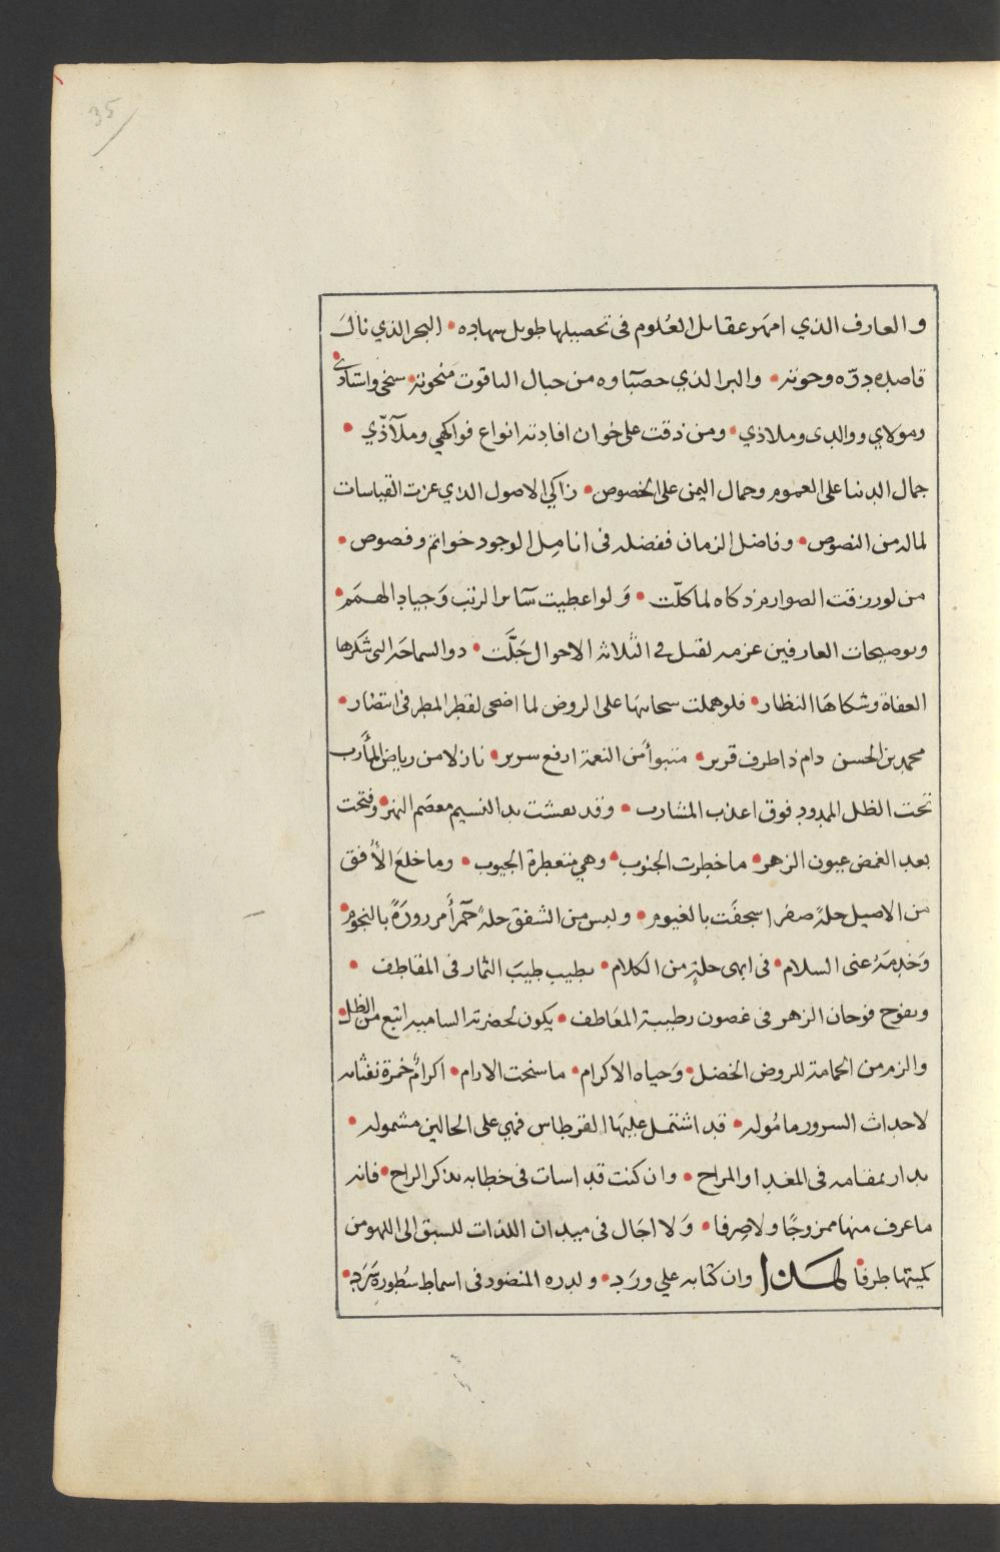 35
والعارف الذي امهر عقايل العُلوم في تحصيلها طويل سهاده • البحر الذي نالَ
قاصده درّه وحوته • والبر الذي حصبَاوه من جبال الياقوت منحوته • شيخي واستاذي •
ومولاي ووالدي وملاذي • ومن ذقت على خوان افادته انواع فواكهي وملآذّي •
جمال الدنيا على العموم وجمال اليمن على الخصوص • زاكي الاصول الذي عزت القياسات
لماله من النصوص • وفاضل الزمان ففضله في انامِل الوجود خواتم وفصوص •
من لو رزقت الصوارم ذكاه لما كلّت • وَلو اعطيت سَاير الرتب وَجياد الهمَم •
وتوصيحات العارفين عزمه لقيل في الثلاثه الاحوال جَلَّت • ذو السماحَه التي شكرها
العفاة وشكاهَا النظار • فلو هملت سحايبهَا على الروض لما اضحى لقطر المطر في انتضار •
محمد بن الحسن دام ذا طرف قرير • متبوأً من النعمة ارفع سرير • نازلا من رياض المأرب
تحت الظل الممدود فوق اعذب المشارب • وقد نعشت يد النسيم معصم النهر • وفتحت
بعد الغمض عيون الزهر • ما خطرت الجنوب • وهي متعطرة الجيوب • وما خلعَ الأفق
من الاصيل حلةً صفرا سجفَت بالغيوم • ولبس من الشفق حلةً حَمرأَ مزرورَةً بالنجوم •
وَخدِمَهُ عني السلام • في ابهى حلةٍ من الكلام • يطيب طيبَ الثمار في المقاطف •
ويفوح فوحان الزهر في غصون رطيبة المعَاطف • يكون لحضرته الساميه اتبع من الظل •
والزم من الحمامة للروض الخضل • وَحياه الاكرام • ما سنحت الارام • اكرامٌ خمرة نفثاته
لاحداث السرور مامُوله • قد اشتمل عليهَا القرطاس فهي على الحالين مشموله •
يدار بمقامه في المغدا والمراح • وان كنت قد اسات في خطابه بذكر الراح • فانه
ما عرف منها ممزوجًا ولا صِرفا • وَلا اجَال في ميدان اللذات للسبق الى اللهو من
كميتها طرفا • هـذا وان كتابه علي ورَد • ولدره المنضود في اسماط سُطوره سَرَد •